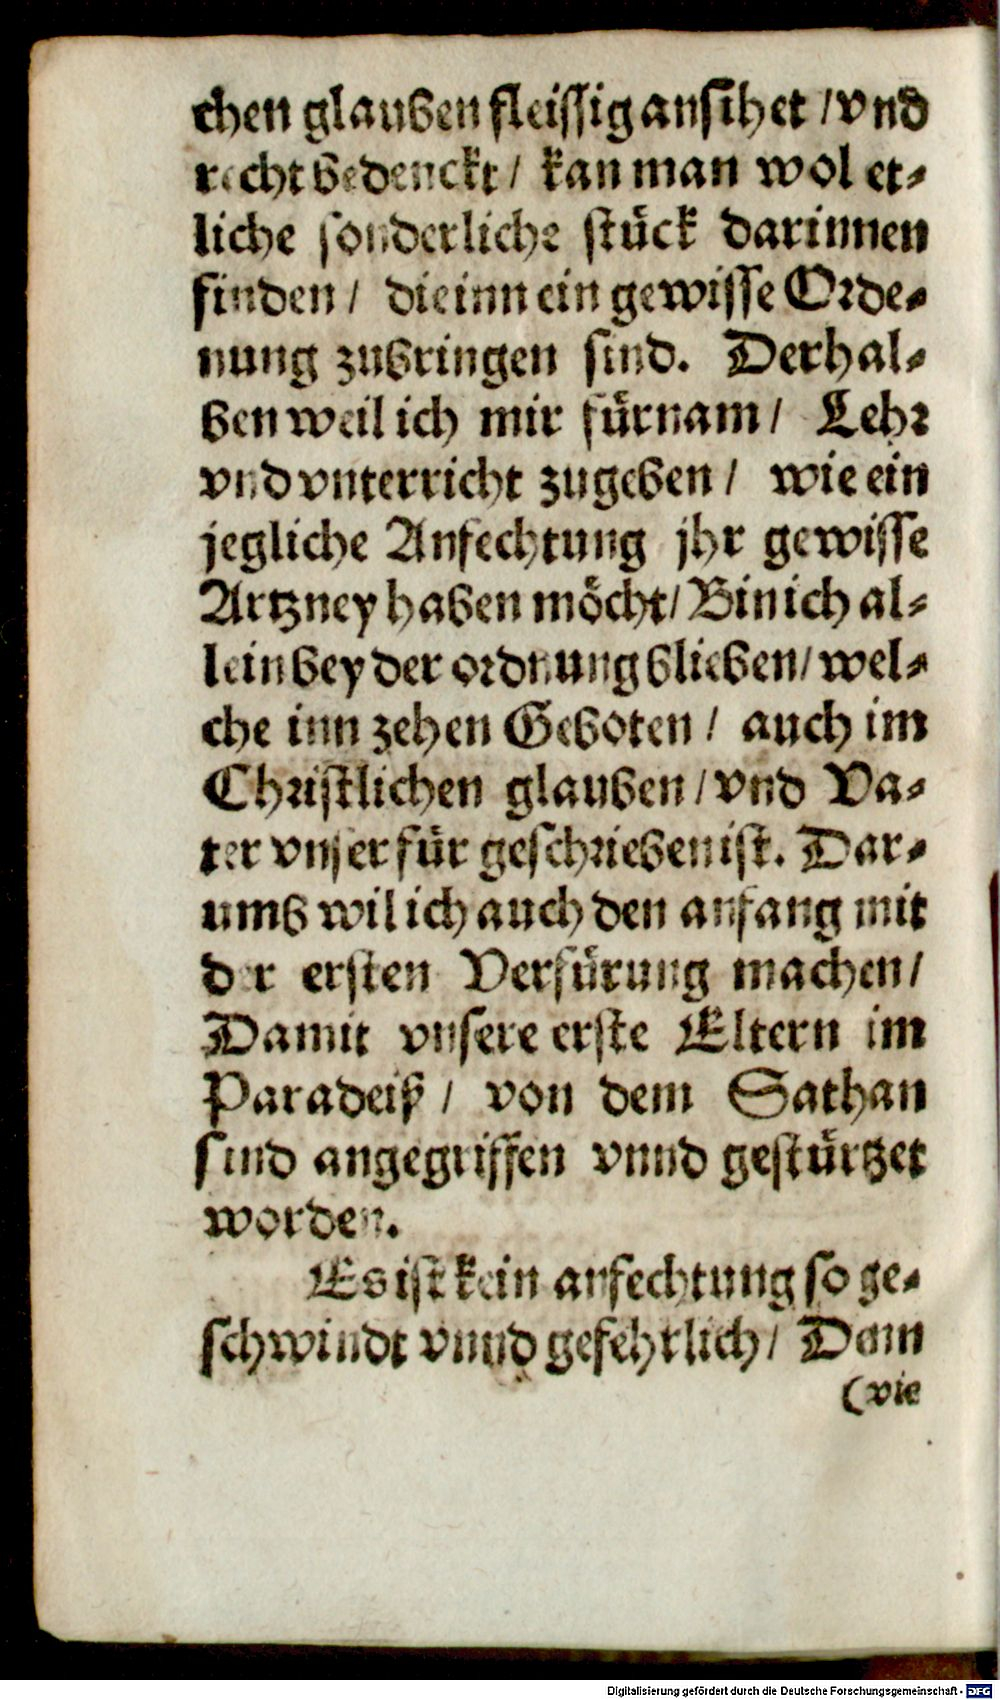 chen glauben fleissig ansihet / vnd
recht bedenckt / kan man wol et-
liche sonderliche stück darinnen
finden / die inn ein gewisse Orde-
nung zubringen sind. Derhal-
ben weil ich mir fürnam / Lehr
vnd vnterricht zugeben / wie ein
jegliche Anfechtung jhr gewisse
Artzney haben möcht / Bin ich al-
lein bey der ordnung blieben / wel-
che inn zehen Geboten / auch im
Christlichen glauben / vnd Va-
ter vnser für geschrieben ist. Dar-
umb wil ich auch den anfang mit
der ersten Verfürung machen /
Damit vnsere erste Eltern im
Paradeiß / von dem Sathan
sind angegriffen vnnd gestürtzet
worden.
Es ist kein anfechtung so ge-
schwindt vnnd gefehrlich / Dem
(wie
Digitalisierung gefördert durch die Deutsche Forschungsgemeinschaft - DFG